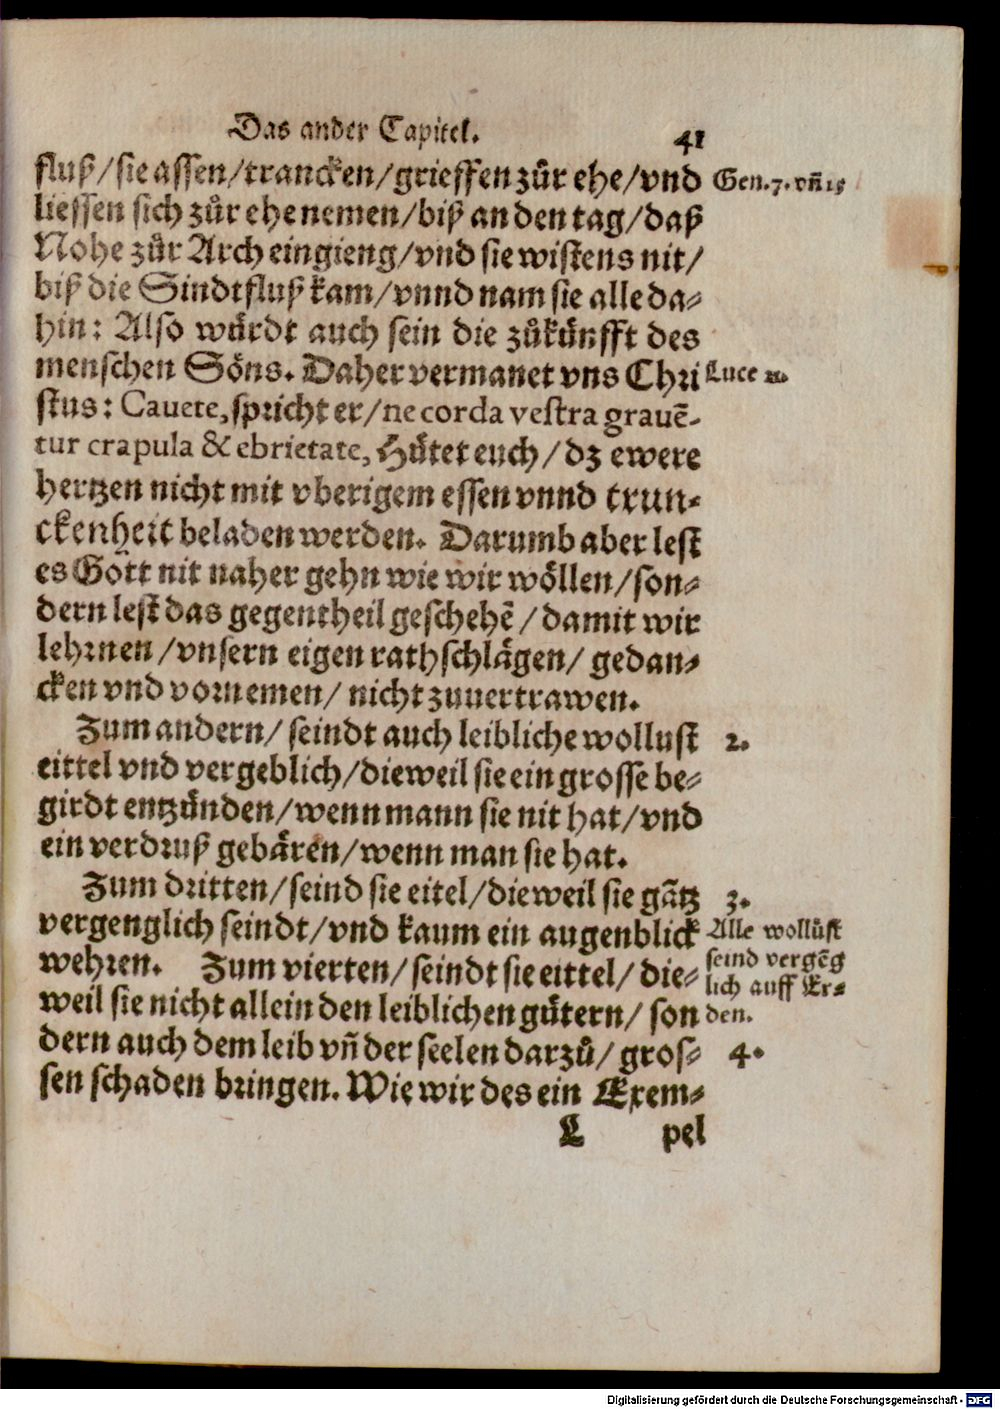 Das ander Capitel.
41
fluß/sie assen/trancken/grieffen zůr ehe/vnd
Gen.7. vñ
liessen sich zůr ehe nemen/biß an den tag/daß
Nohe zůr Arch eingieng/vnd sie wistens nit/
biß die Sindtfluß kam/vnnd nam sie alle da-
hin: Also würdt auch sein die zůkünfft des
menschen Söns. Daher vermanet vns Chri
Luce
stus: Cauete, spricht er/ne corda vestra grauē-
tur crapula & ebrietate, Hütet euch/dz ewere
hertzen nicht mit vberigem essen vnnd trun-
ckenheit beladen werden. Darumb aber lest
es Gott nit naher gehn wie wir wöllen/son-
dern lest das gegentheil geschehē/damit wir
lehrnen/vnsern eigen rathschlägen/ gedan-
cken vnd vornemen/ nicht zuuertrawen.
Zum andern/ seindt auch leibliche wollust
2.
eittel vnd vergeblich/dieweil sie ein grosse be-
girdt entzünden/wenn mann sie nit hat/vnd
ein verdruß gebären/wenn man sie hat.
Zum dritten/seind sie eitel/dieweil sie gātz
3.
vergenglich seindt/vnd kaum ein augenblick
Alle wollüst
seind vergēg
lich auff Er-
den.
wehren. Zum vierten/seindt sie eittel/die-
weil sie nicht allein den leiblichen gütern/ son
dern auch dem leib vñ der seelen darzů/ gros-
4.
sen schaden bringen. Wie wir des ein Exem-
L pel
Digitalisierung gefördert durch die Deutsche Forschungsgemeinschaft - DFG